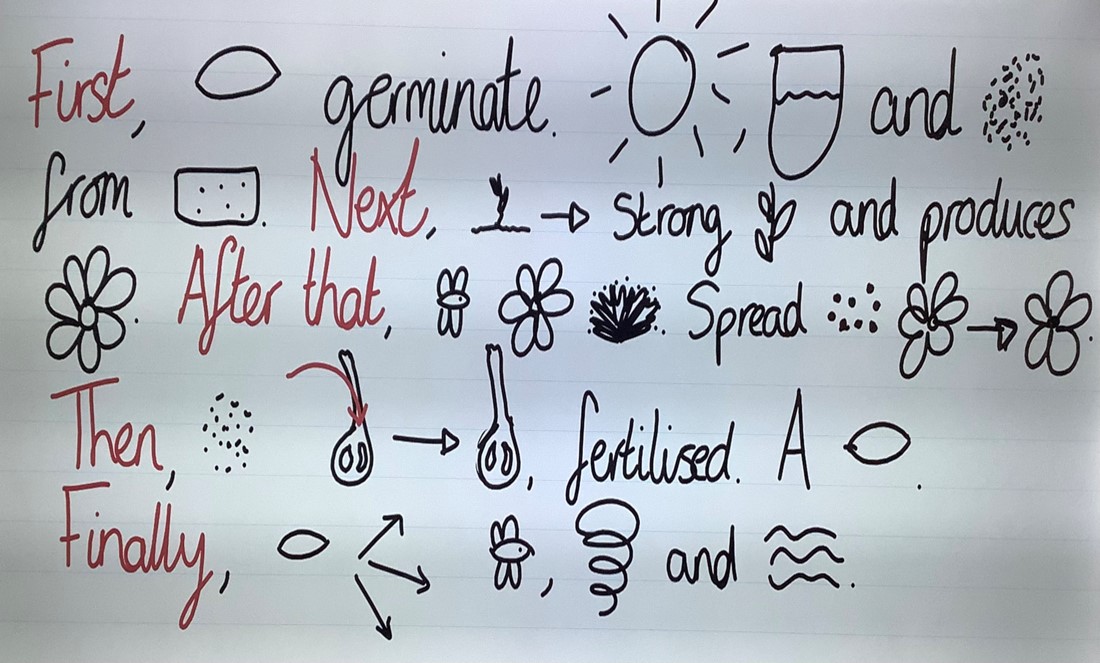 First, germinate. and
from . Next, Strong and produces
. After that, . Spread .
Then, , fertilised. A .
Finally, , and .